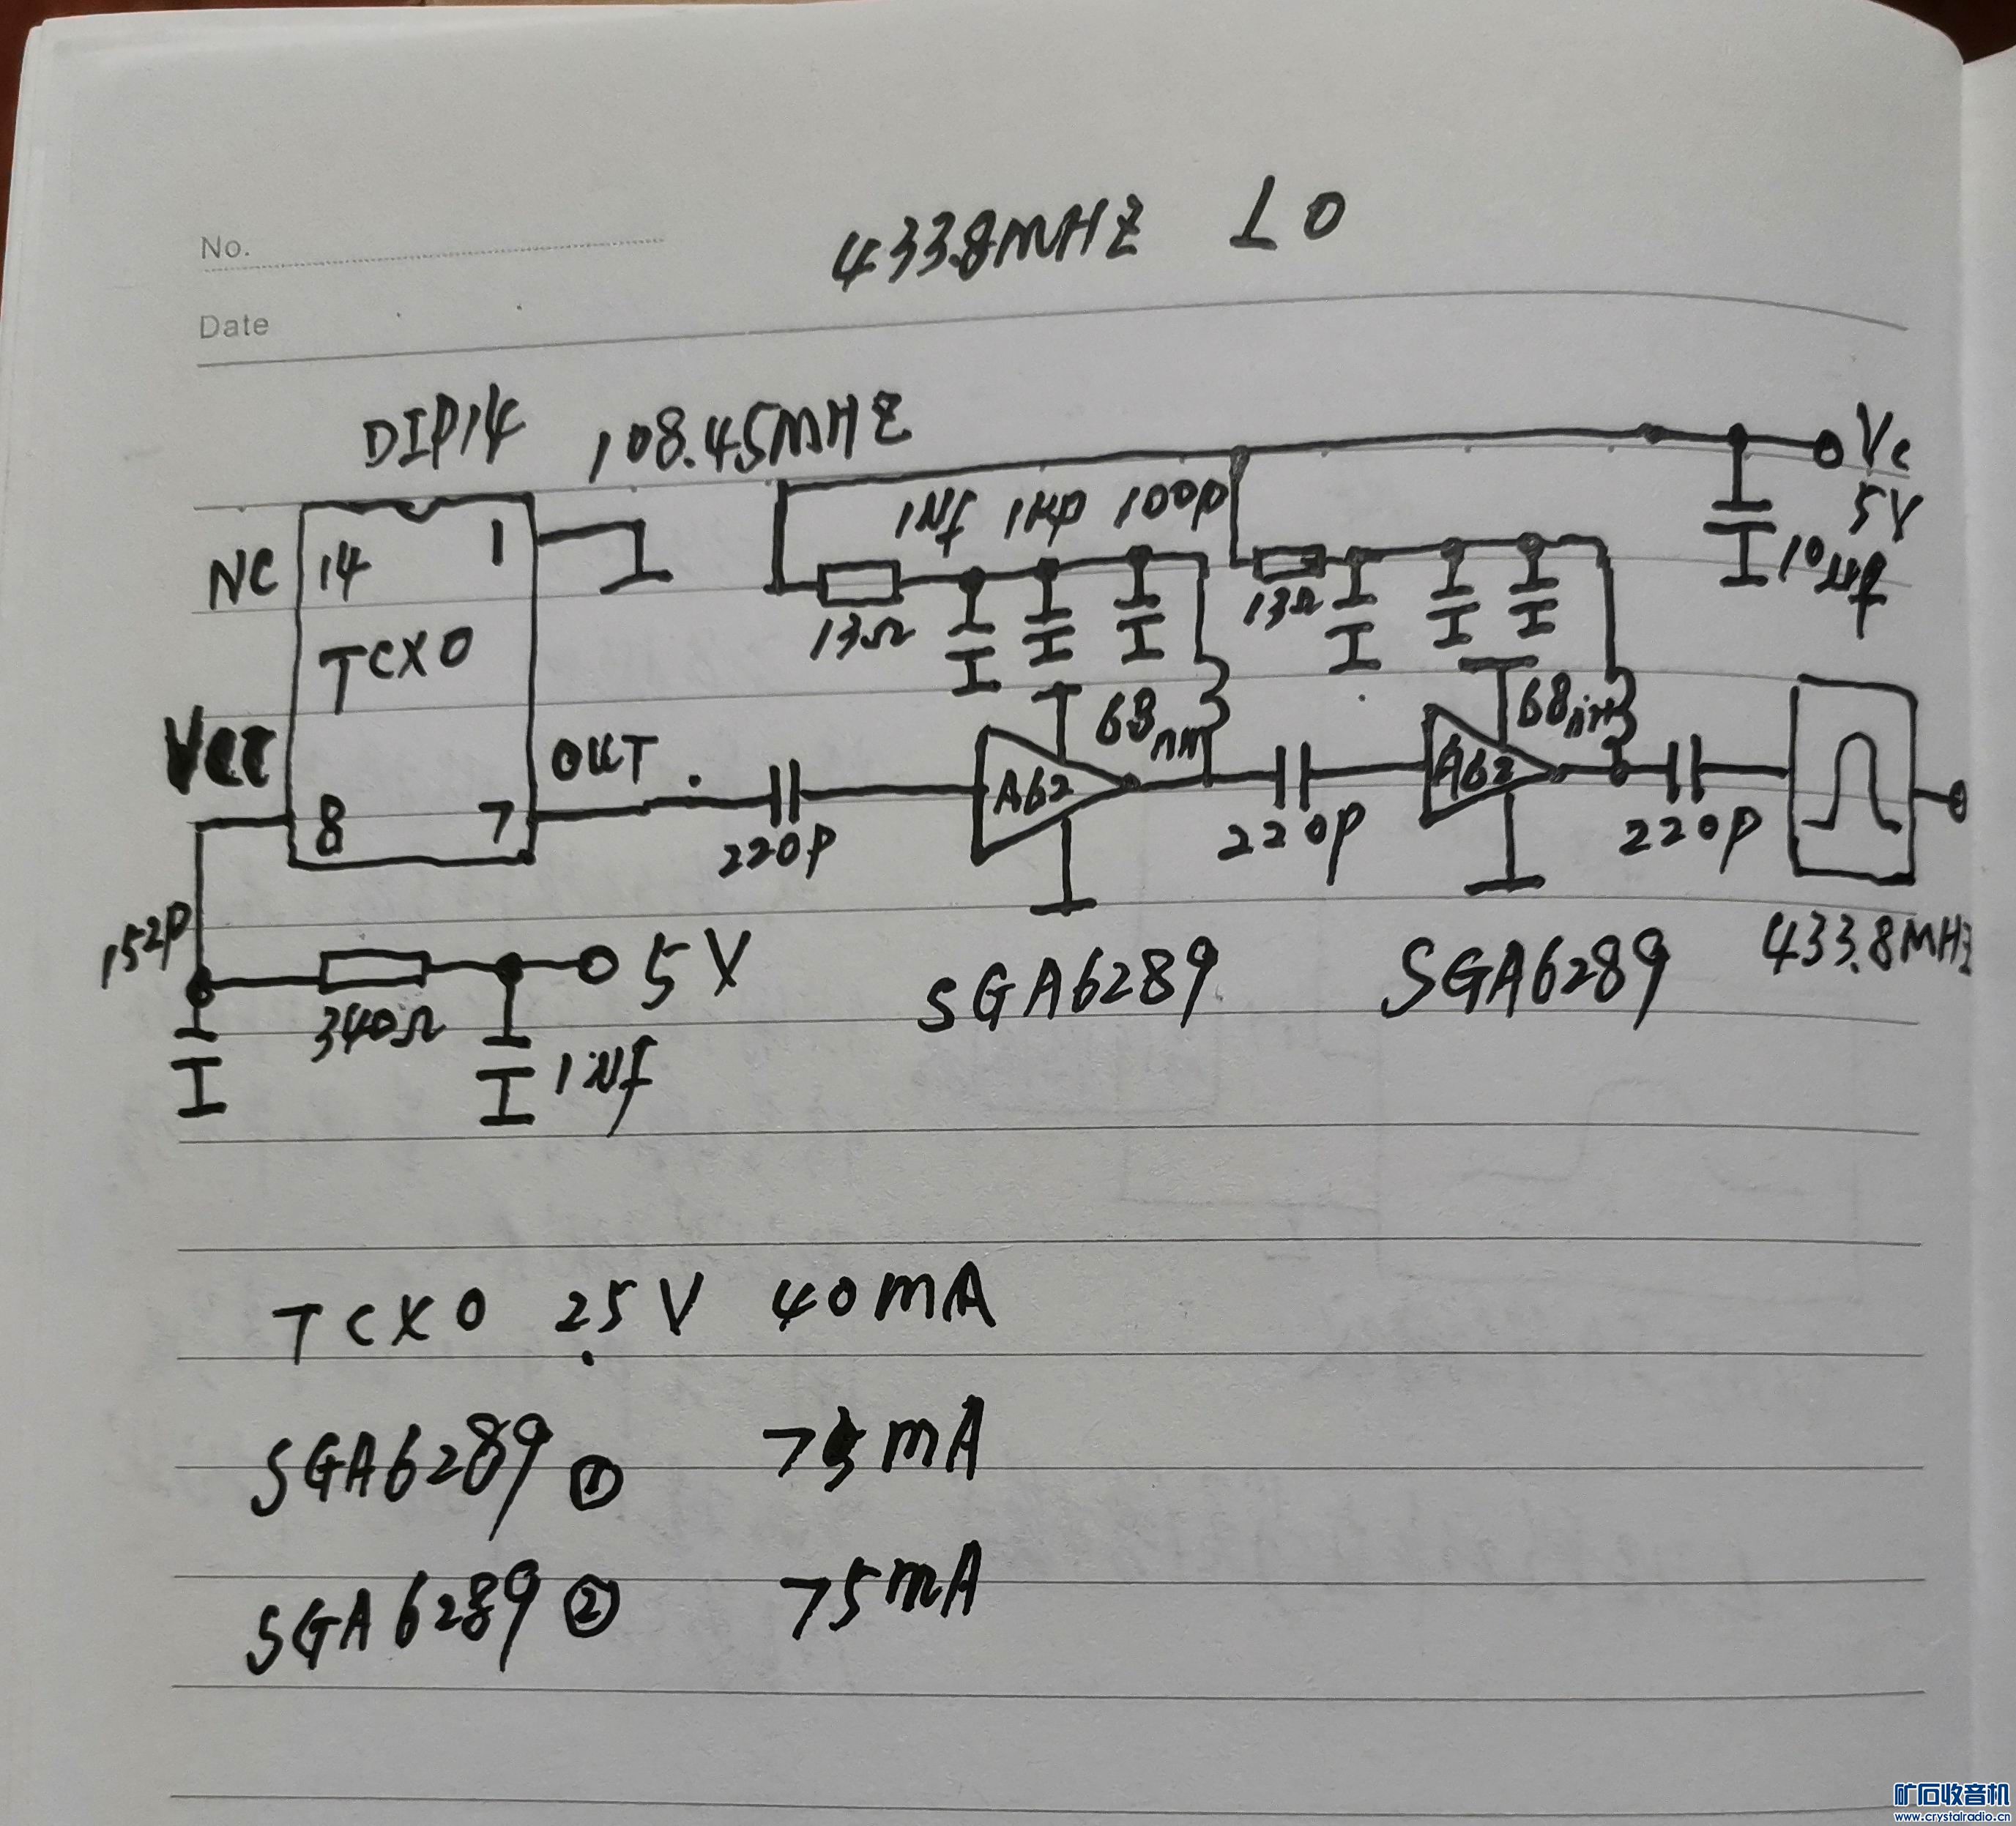 No.
433.8MHZ LO
Date
DIP14 108.45MHZ
Vc
5V
10uf
1Nf 1Kp 100p
NC 14 1
13Ω 13Ω
TCXO
68nH 68nH
VCC OUT
8 7
A62 A62
220P 220P 220P
152P
340Ω
5V
1Nf
SGA6289 SGA6289 433.8MHz
TCXO 2.5V 40mA
SGA6289 ① 75mA
SGA6289 ② 75mA
矿石收音机
www.crystalradio.cn